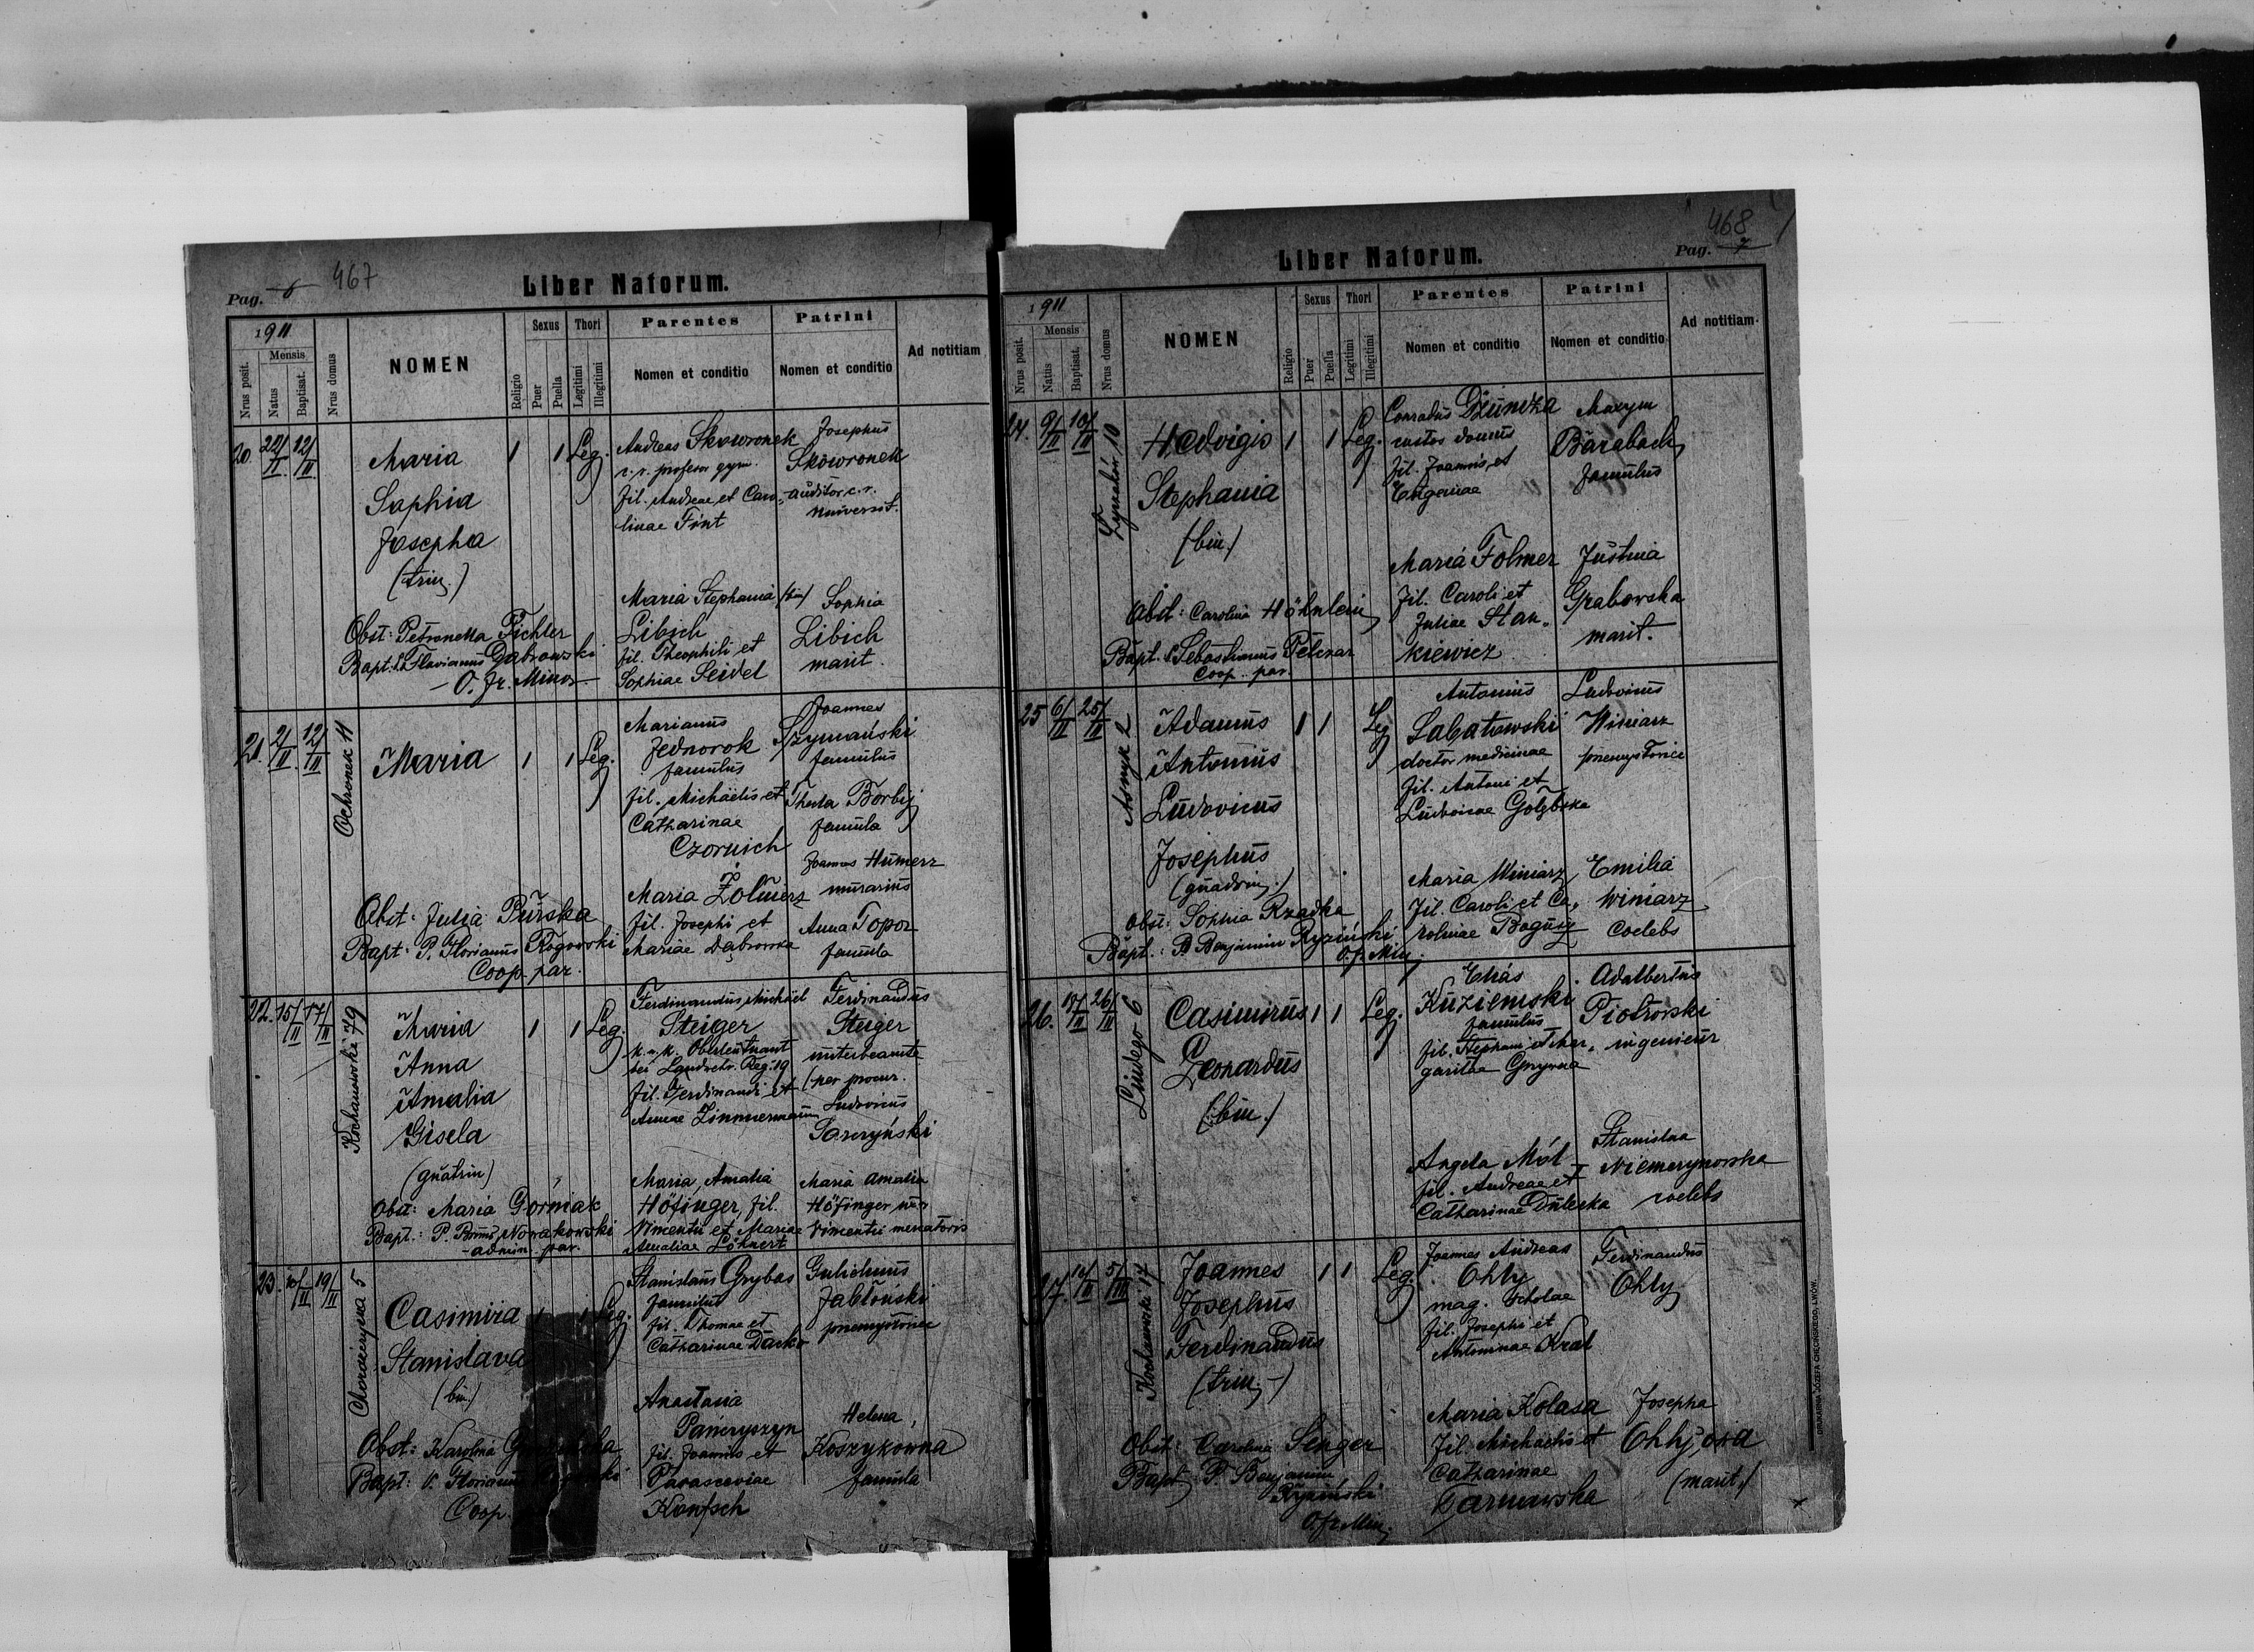 Pag. 6 467
Liber Natorum.
1911
Nrus posit.
Mensis
Natus
Baptisat.
Nrus domus
NOMEN
Religio
Sexus
Puer
Puella
Thori
Legitimi
Illegitimi
Parentes
Nomen et conditio
Patrini
Nomen et conditio
Ad notitiam
20. 22/II 12/III
Maria
Sophia
Josepha
(trin.)
1 1 Leg.
Andreas Skowronek
c. r. profesor gym.
fil. Andreae et Caro-
linae Fint
Maria Stephania (bin)
Libich
fil. Theophili et
Sophiae Seidel
Josephus
Skowronek
auditor c. r.
Universit.
Sophia
Libich
marit.
Obst: Petronella Fichler
Bapt. P. Flavianus Dąbrowski
O. Fr. Minor
21. 2/II 12/III
Ochronek 11
Maria
1 1 Leg.
Marianus
Jednorok
famulus
fil. Michaelis et
Catharinae
Czornich
Maria Żołnierz
fil. Josephi et
Mariae Dąbrowska
Joannes
Szymański
famulus
Thecla Borbij
famula
Joannes Humerz
murarius
Anna Topor
famula
Obst: Julia Burska
Bapt: P. Florianus Rogowski
Coop. par.
22. 15/II 17/III
Kochanowski 79
Maria
Anna
Amalia
Gisela
(quatrin)
1 1 Leg.
Ferdinandus, Michäel
Steiger
k. u. k. Oberleutnant
bei Landwehr. Reg. 19
fil. Ferdinandi et
Annae Zimmermann
Maria, Amalia
Höfinger, fil.
Vincentii et Mariae
Amaliae Löhnert
Ferdinandus
Steiger
unterbeamte
(per procur.
Ludovicus
Maria Amalia
Höfinger
Vincentii mercatoris
Obst: Maria Gormak
Bapt.: P. Nowakowski
admin. par.
23. 10/II 19/III
Casimira
Stanislava
(bin.)
1 1 Leg.
Stanislaus Grybas
famulus
fil. Thomae et
Catharinae Dacko
Anastasia
Panczyszyn
fil. Joannis et
Parasceviae
Gulielmus
Jabłonski
Helena
Koszykowna
famula
Obst: Karolina
Bapt: P. Florianus
Coop.
468
Pag. 7
Liber Natorum.
1911
Nrus posit.
Mensis
Natus
Baptisat.
Nrus domus
NOMEN
Religio
Sexus
Puer
Puella
Thori
Legitimi
Illegitimi
Parentes
Nomen et conditio
Patrini
Nomen et conditio
Ad notitiam.
24. 9/II
Hedvigis
Stephania
(bin.)
1 1 Leg.
custos domus
fil. Joannis et
Eugeniae
Maria Folmer
fil. Caroli et
Juliae Stan-
kiewicz
Maxym
Barabach
famulus
Justina
Grabowska
marit.
Obst: Carolina Höhnlein
Bapt. P. Sebastianus Pelczar
Coop. par.
25 6/II 25/III
Asnyk 2
Adamus
Antonius
Ludovicus
Josephus
(quadrin.)
1 1 Leg
Antonius
Sabatowski
doctor medicinae
fil. Antoni et
Ludovicae Gołębska
Maria Winiarz
fil. Caroli et Ca-
rolinae
Ludovicus
Winiarz
Emilia
Winiarz
coelebs
Obst: Sophia Rzadka
Bapt.: P. Benjamin Ryziński
O. fr. Min.
26. 26/III
Lindego 6
Casimirus
Leonardus
(bin.)
1 1 Leg.
Elias
Kuziemski
famulus
fil. Stephani et Mar-
garitae
Angela Mól
fil. Andreae et
Catharinae Duleska
Adalbertus
Piotrowski
ingenieur
Stanislaa
Niemczynowska
coelebs
27. 14/II 5/III
Kochanowski 17
Joannes
Josephus
Ferdinandus
(trin.)
1 1 Leg.
Joannes Andreas
Ohly
mag. scholae
fil. Josephi et
Antoninae Kral
Maria Kolasa
fil. Michaelis et
Catharinae
Tarnawska
Ferdinandus
Ohly
Josepha
(marit.)
Obst: Carolina Senger
Bapt P. Benjamin
Ryziński
O. fr. Min.
DRUKARNIA JÓZEFA CHĘCIŃSKIEGO, LWÓW.